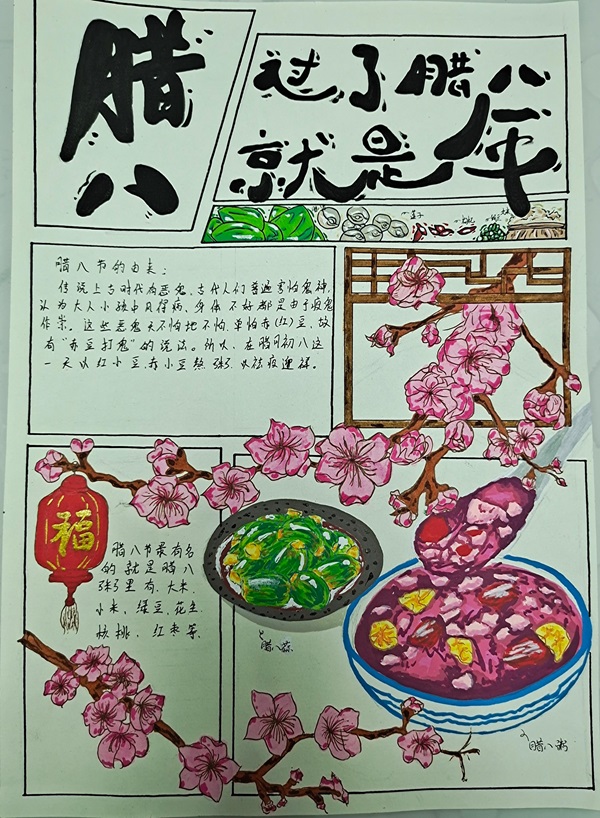 腊
八
过了腊八
就是年
腊八节的由来：
传说上古时代有恶鬼，古代人们普遍害怕鬼神，
认为大人小孩中风得病、身体不好都是由于疫鬼
作祟。这些恶鬼天不怕地不怕，单怕赤(红)豆，故
有“赤豆打鬼”的说法。所以，在腊月初八这
一天以红小豆赤小豆熬粥，以祛疫迎祥。
福
腊八节最有名
的就是腊八
粥粥里有，大米、
小米、绿豆、花生、
核桃、红枣等、
腊八蒜
腊八粥